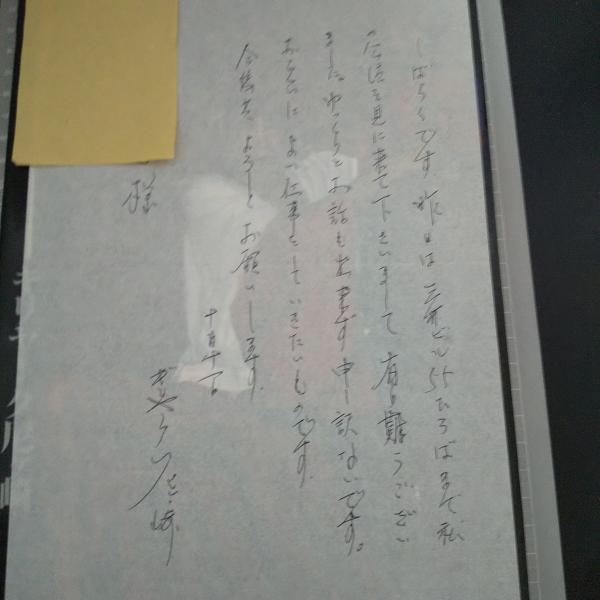 しばらくです。昨日は三井ビル55ひろばまで私
を見に来て下さいまして有難うござい
ました。ゆっくりとお話も出来ず申し訳ないです。
お互いによい仕事をしていきたいものです。
今後共よろしくお願いします。
十月十一日
様